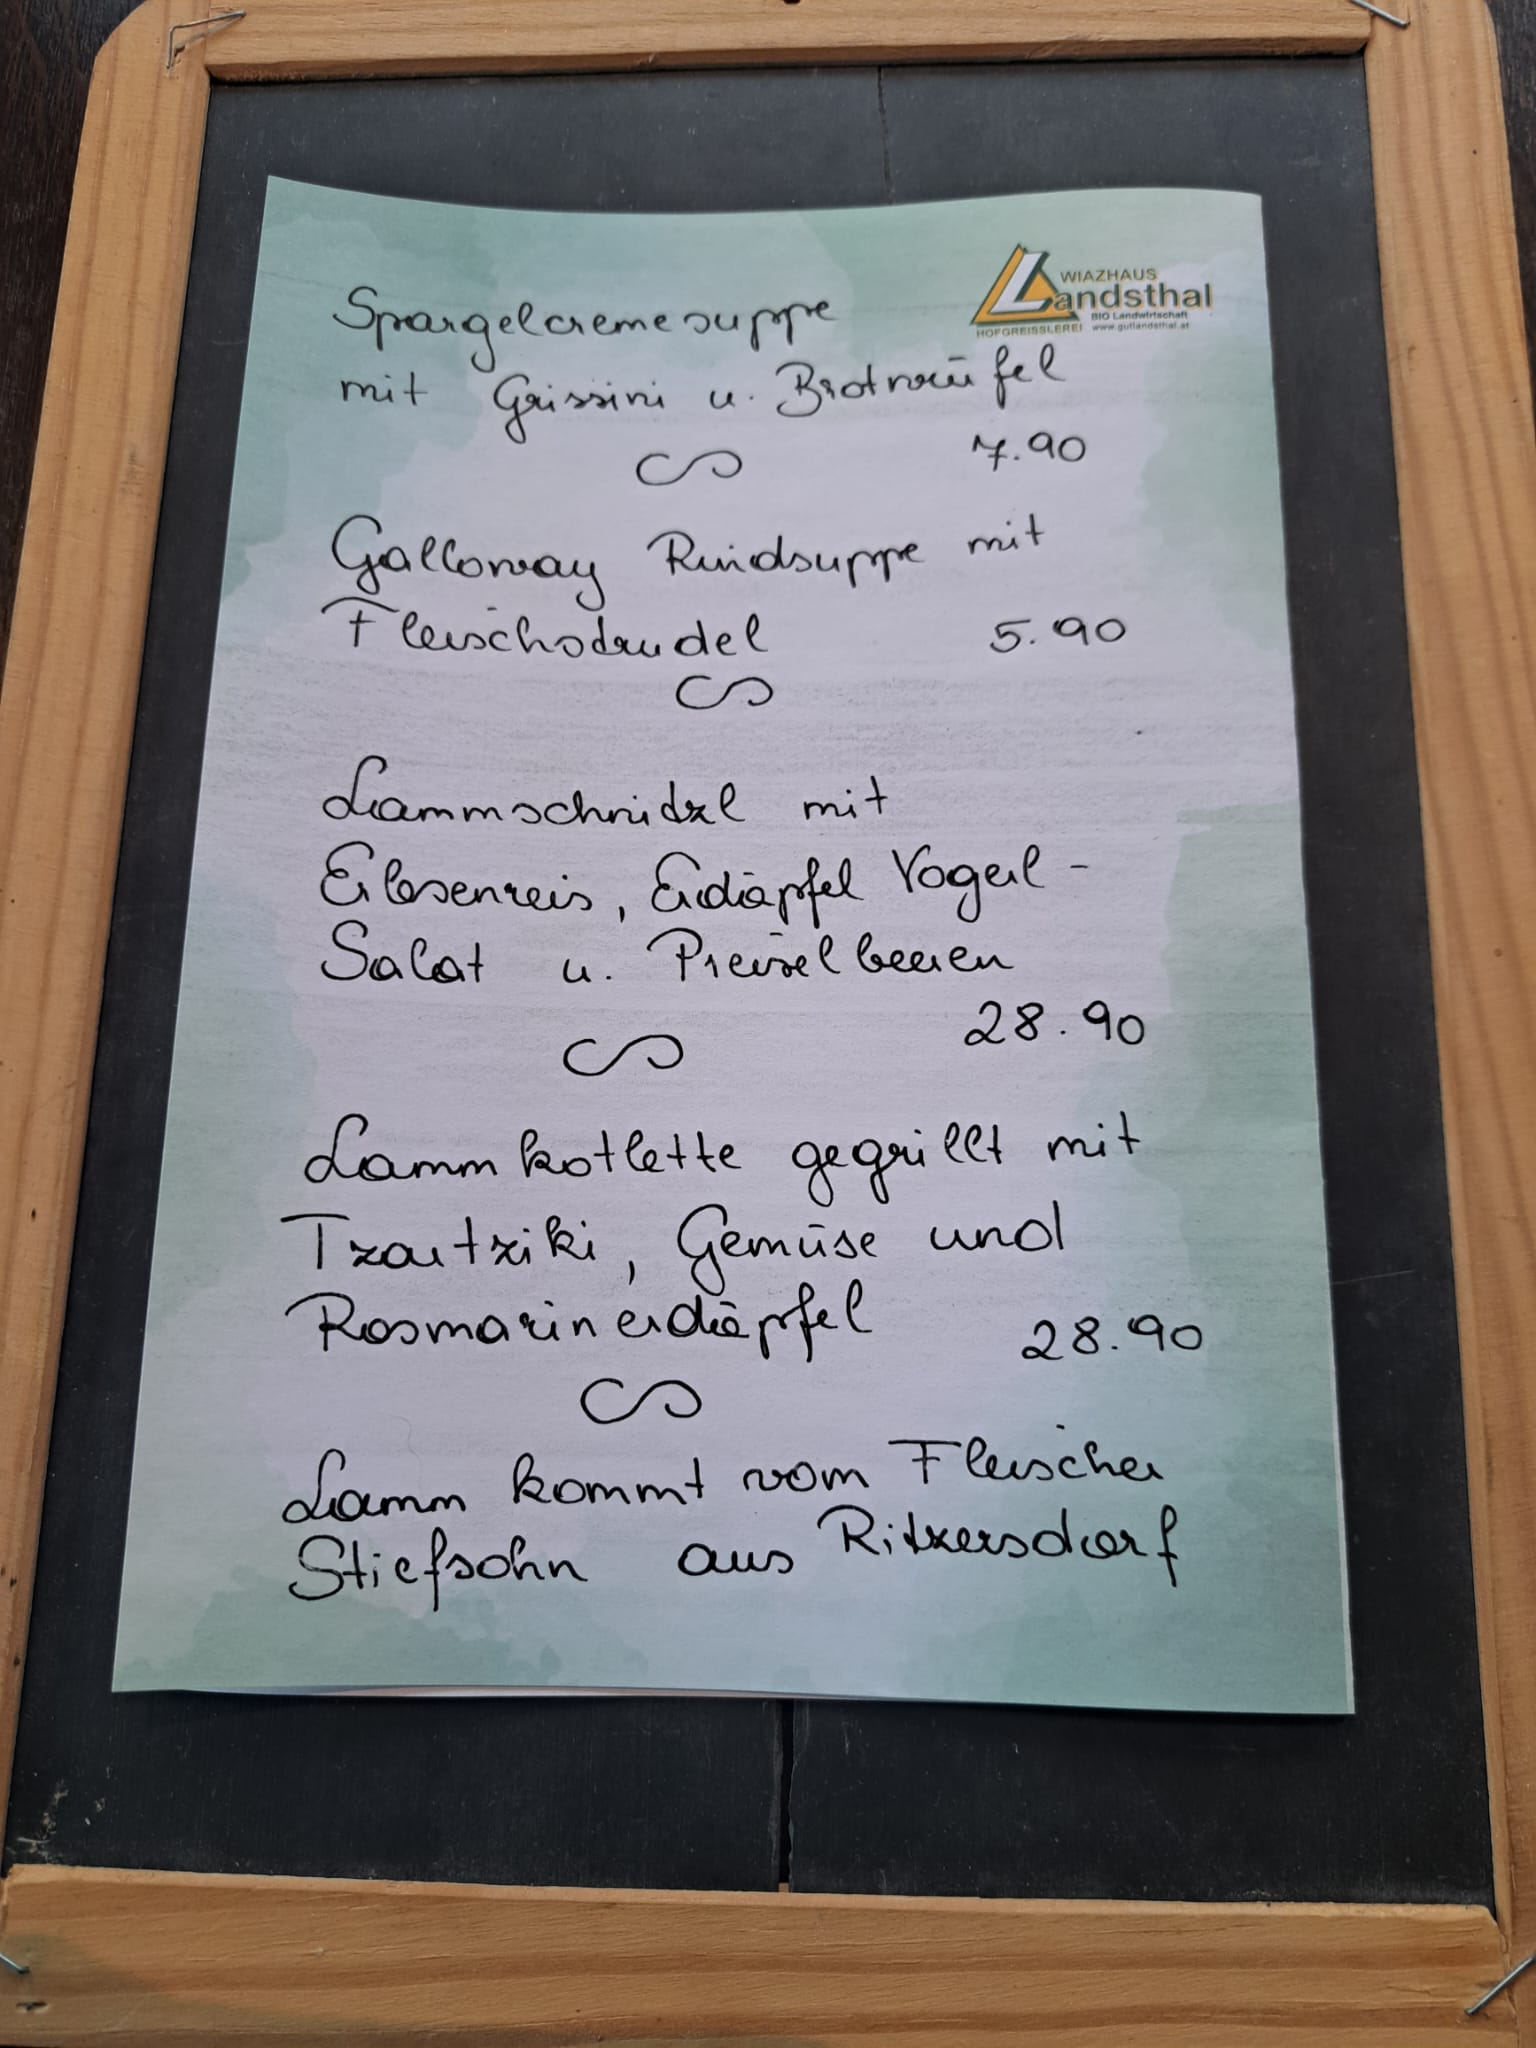 WIAZHAUS
Landsthal
BIO Landwirtschaft
HOFGREISSLEREI www.gutlandsthal.at
Spargelcremesuppe
mit Grissini u. Brotwürfel
7.90
Galloway Rindsuppe mit
Fleischstrudel 5.90
Lammschnitzl mit
Erbsenreis, Erdäpfel Vogerl-
Salat u. Preiselbeeren
28.90
Lammkotlette gegrillt mit
Tzatziki, Gemüse und
Rosmarinerdäpfel 28.90
Lamm kommt vom Fleischer
Stiefsohn aus Ritzersdorf